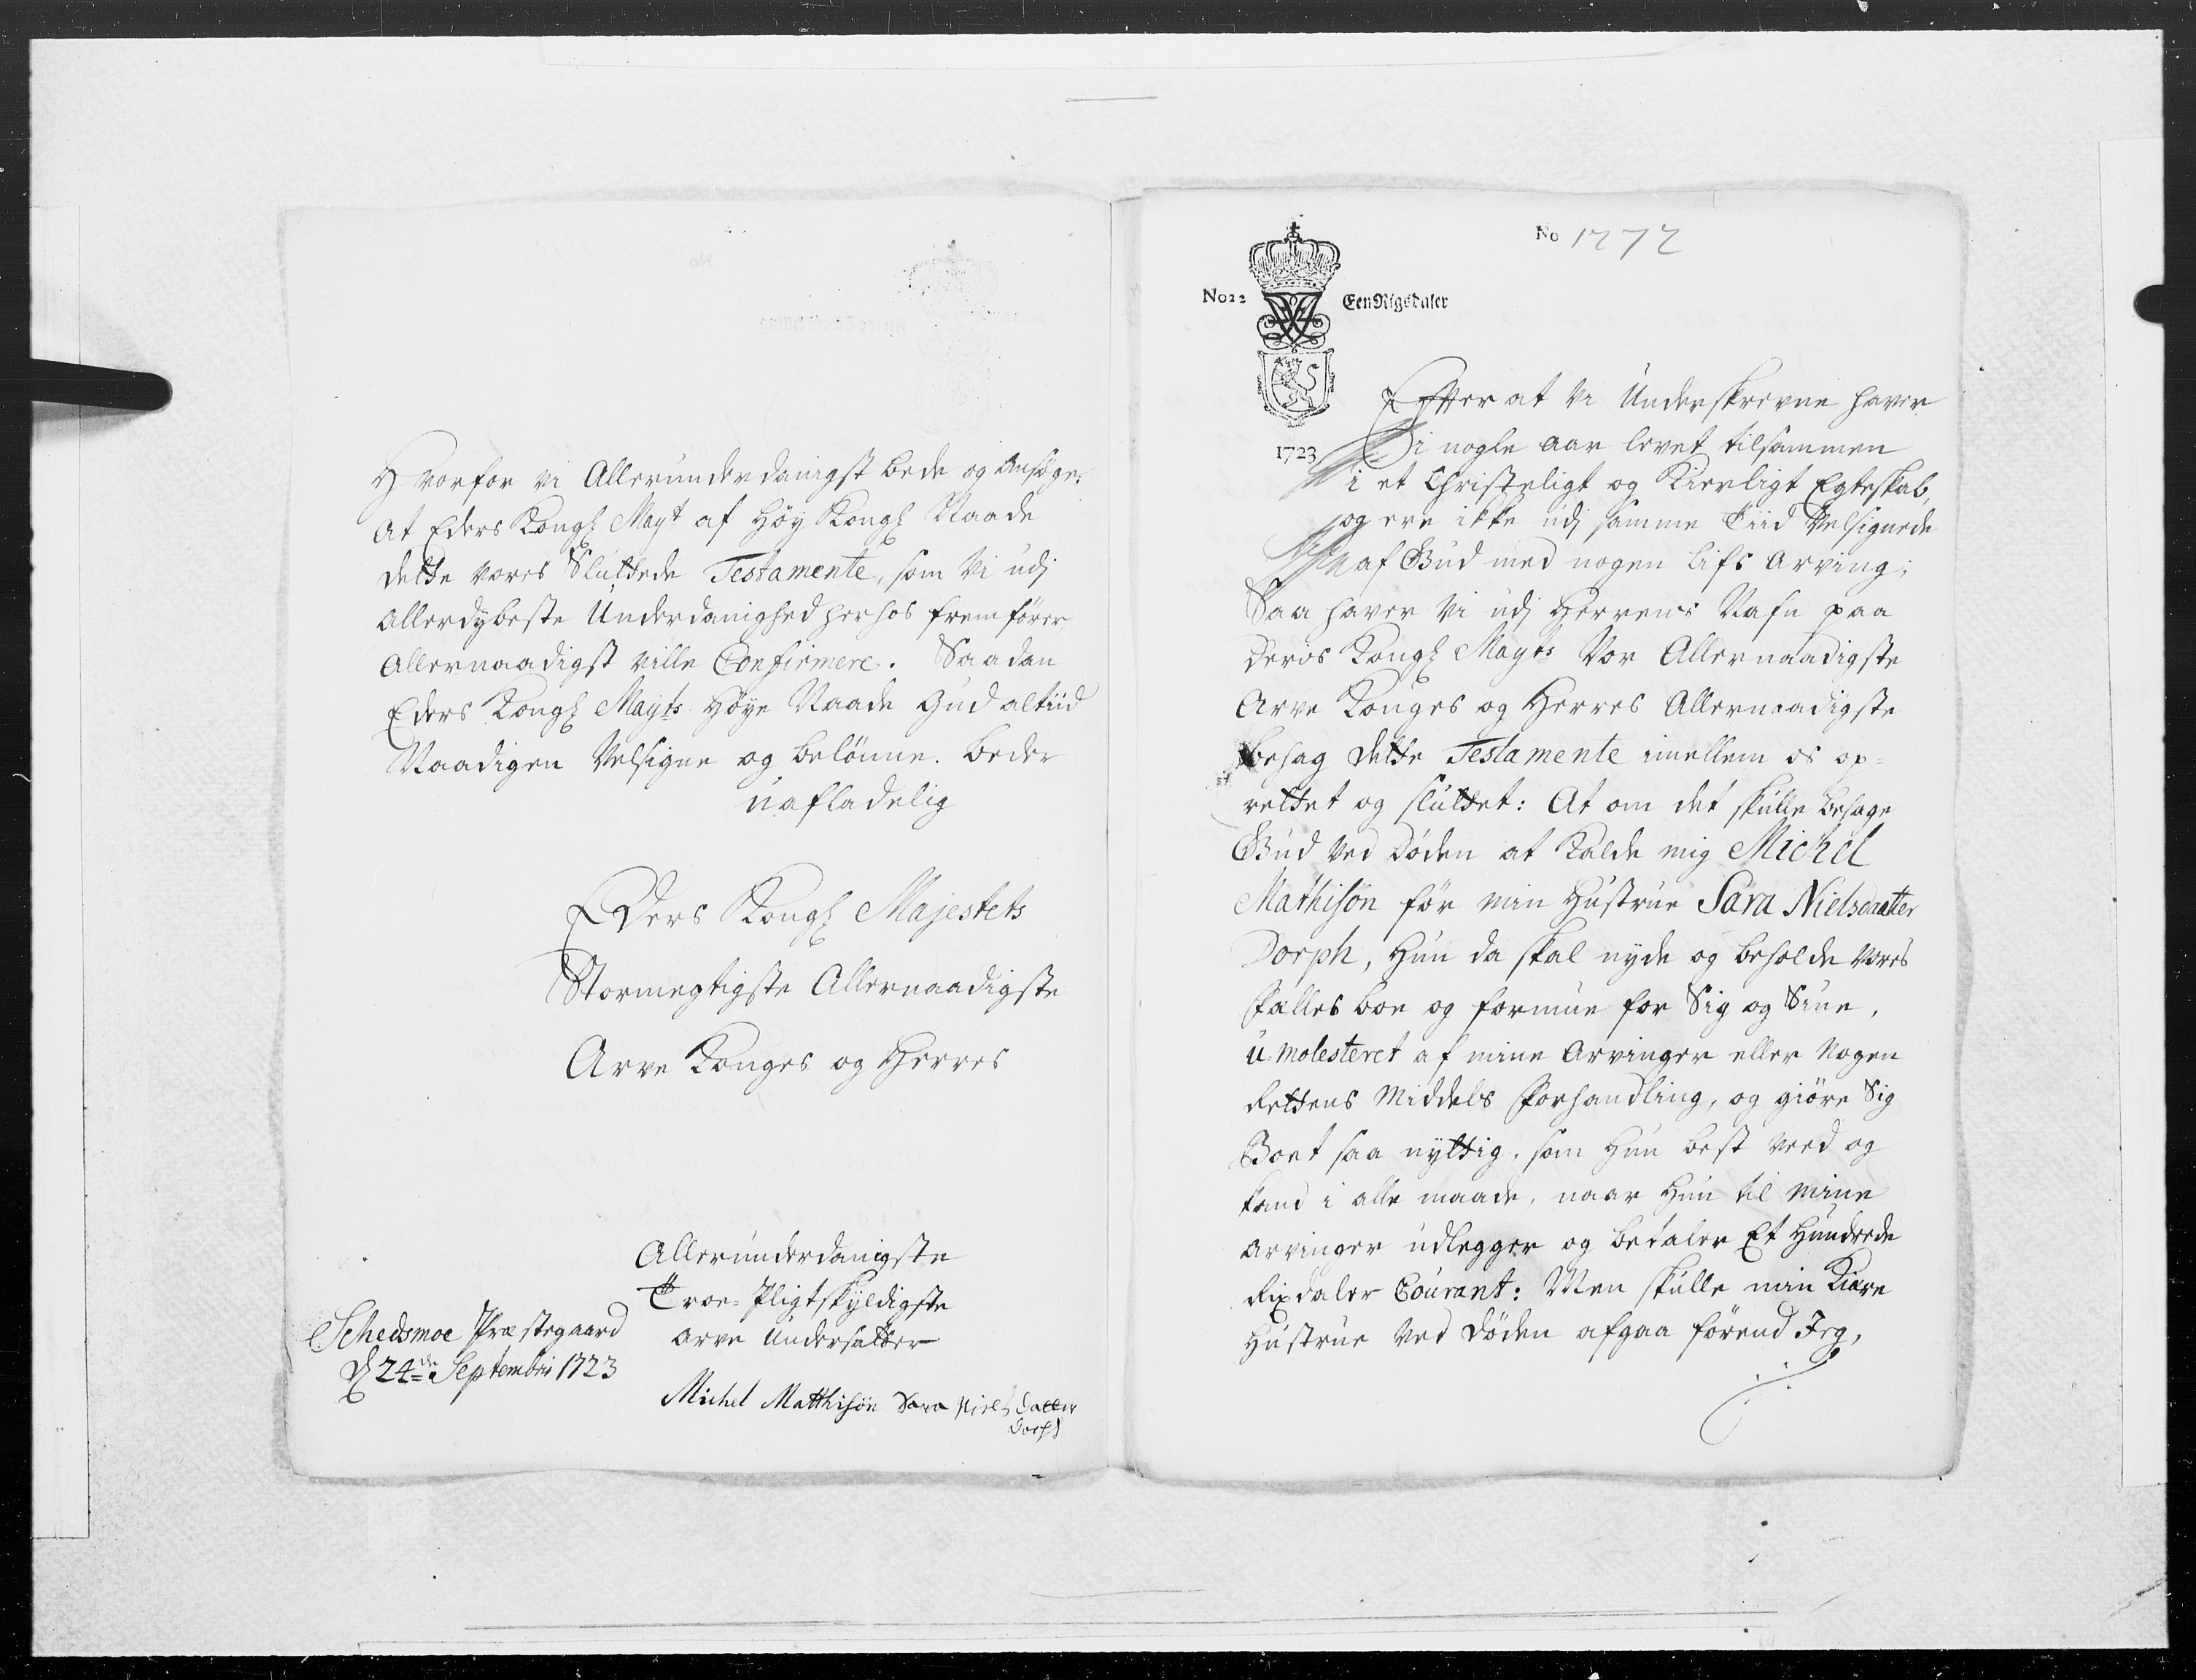 Hvorfor vi Allerunderdanigst bede og Ansöge,
at Eders Kongl Mayt af Höy Kongl Naade
dette vores Sluttede Testamente, som Vi udj
Allerdybeste Underdanighed herhos fremförer
Allernaadigst ville Confirmere. Saadan
Eders Kongl Mayts Höye Naade Gud altiid
Naadigen Velsigne og belönne. beder
uafladelig
Eders Kongl Majestets
Stormegtigste Allernaadigste
Arve Konges og Herres
Allerunderdanigste
Troe-Pligtskyldigste
arve Undersatter
Schedsmoe Præstegaard
d 24de Septembris 1723
Michel Matthisön Sara Niels Datter
Dorph
No 1772
No 22 Een Rigsdaler
1723
Efter at Vi Underskrevne haver
i nogle aar levet tilsammen
i et Christeligt og Kierligt Egteskab,
og ere ikke udj samme Tiid Velsignede
af Gud med nogen Lifs Arving;
Saa haver Vi udj Herrens Nafn paa
Deris Kongl Mayts Vor Allernaadigste
Arve Konges og Herres Allernaadigste
behag dette Testamente imellem os op=
rettet og sluttet: At om det skulle behage
Gud ved Döden at Kalde mig Michel
Mathisön för min Hustrue Sara Nielsdaatter
Dorph, Hun da skal nyde og beholde Vores
Fælles boe og formue for Sig og Sine,
u-molesteret af mine Arvinger eller Nogen
Rettens Middels Forhandling, og giöre Sig
Boet saa nyttig, som Hun best veed og
kand i alle maade, naar Hun til mine
arvinger udlegger og betaler Et Hundrede
Rixdaler Courant: Men skulle min Kiære
Hustrue Ved Döden afgaa förend Jeg,